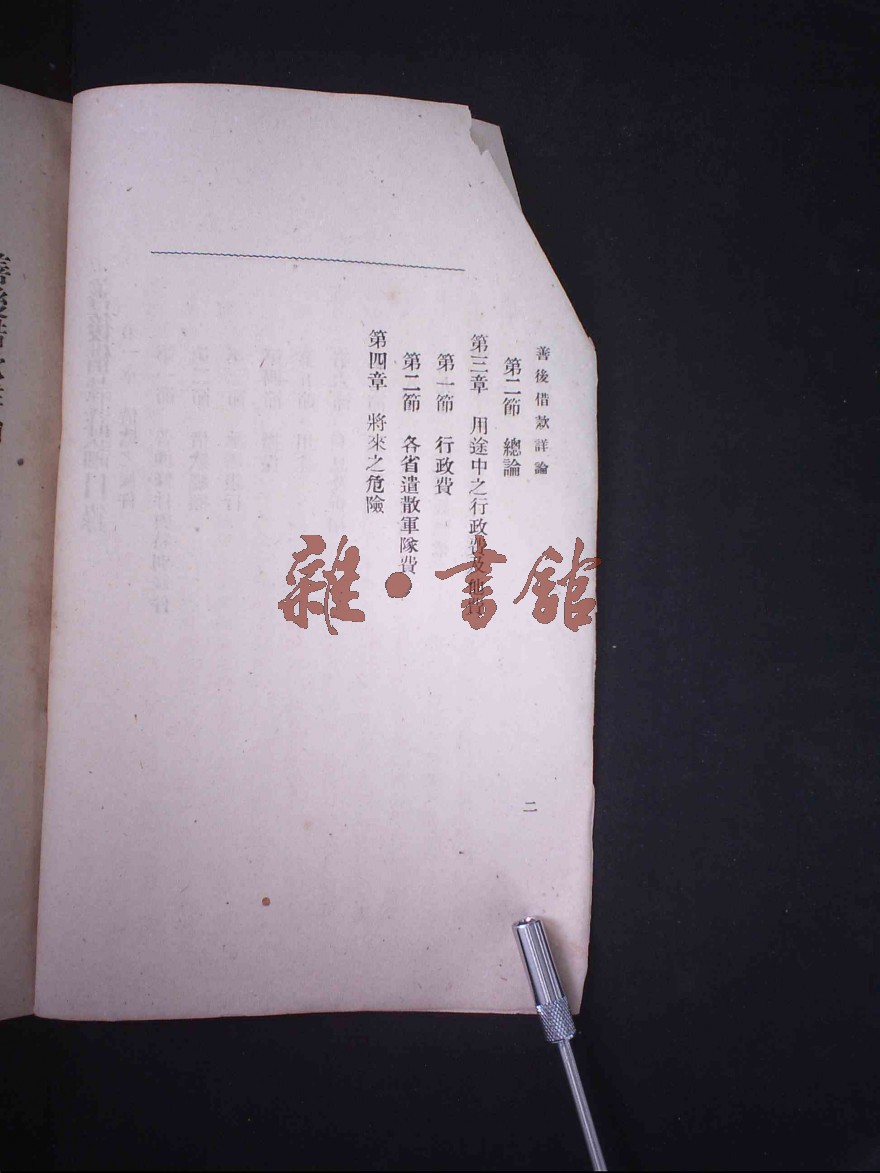 善後借款詳論
第二節　總論
第三章　用途中之行政費及
第一節　行政費
第二節　各省遣散軍隊費
第四章　將來之危險
二
雜·書館